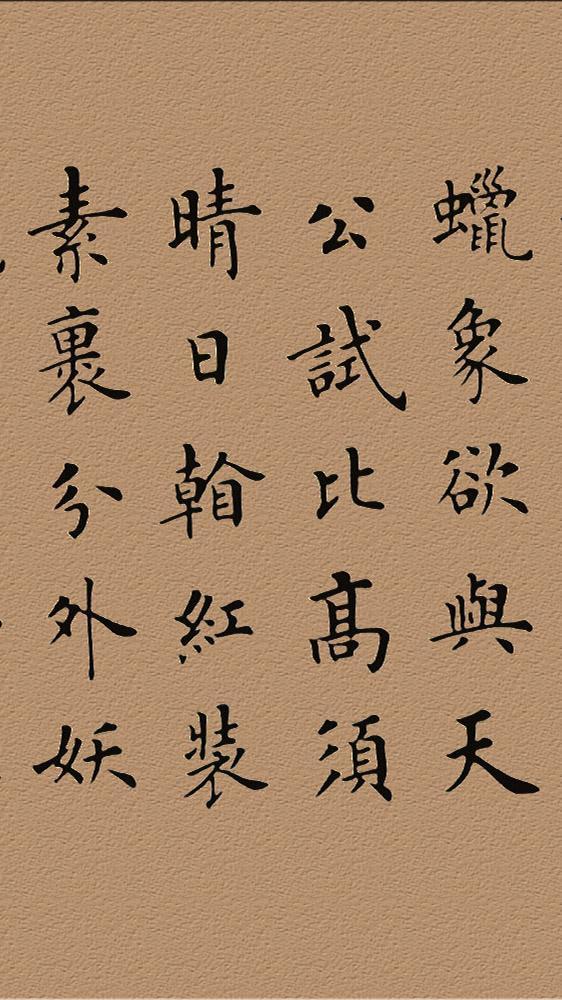 蠟象欲與天
公試比高須
晴日翰紅裝
素裹分外妖